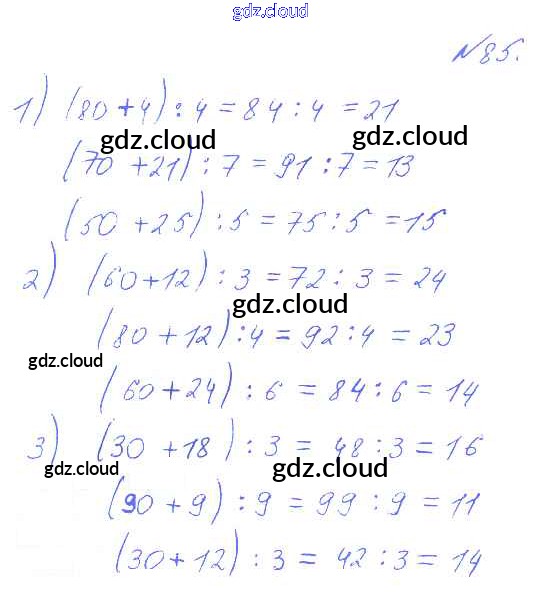 gdz.cloud
№85.
1) (80+4) : 4 = 84 : 4 = 21
gdz.cloud gdz.cloud
(70 +21) : 7 = 91 : 7 = 13
(50 +25) : 5 = 75 : 5 = 15
2) (60+12) : 3 = 72 : 3 = 24
gdz.cloud
(80 + 12) : 4 = 92 : 4 = 23
gdz.cloud
(60+24) : 6 = 84 : 6 = 14
3) (30 +18) : 3 = 48 : 3 = 16
gdz.cloud gdz.cloud
(90 + 9) : 9 = 99 : 9 = 11
(30+12) : 3 = 42 : 3 = 14